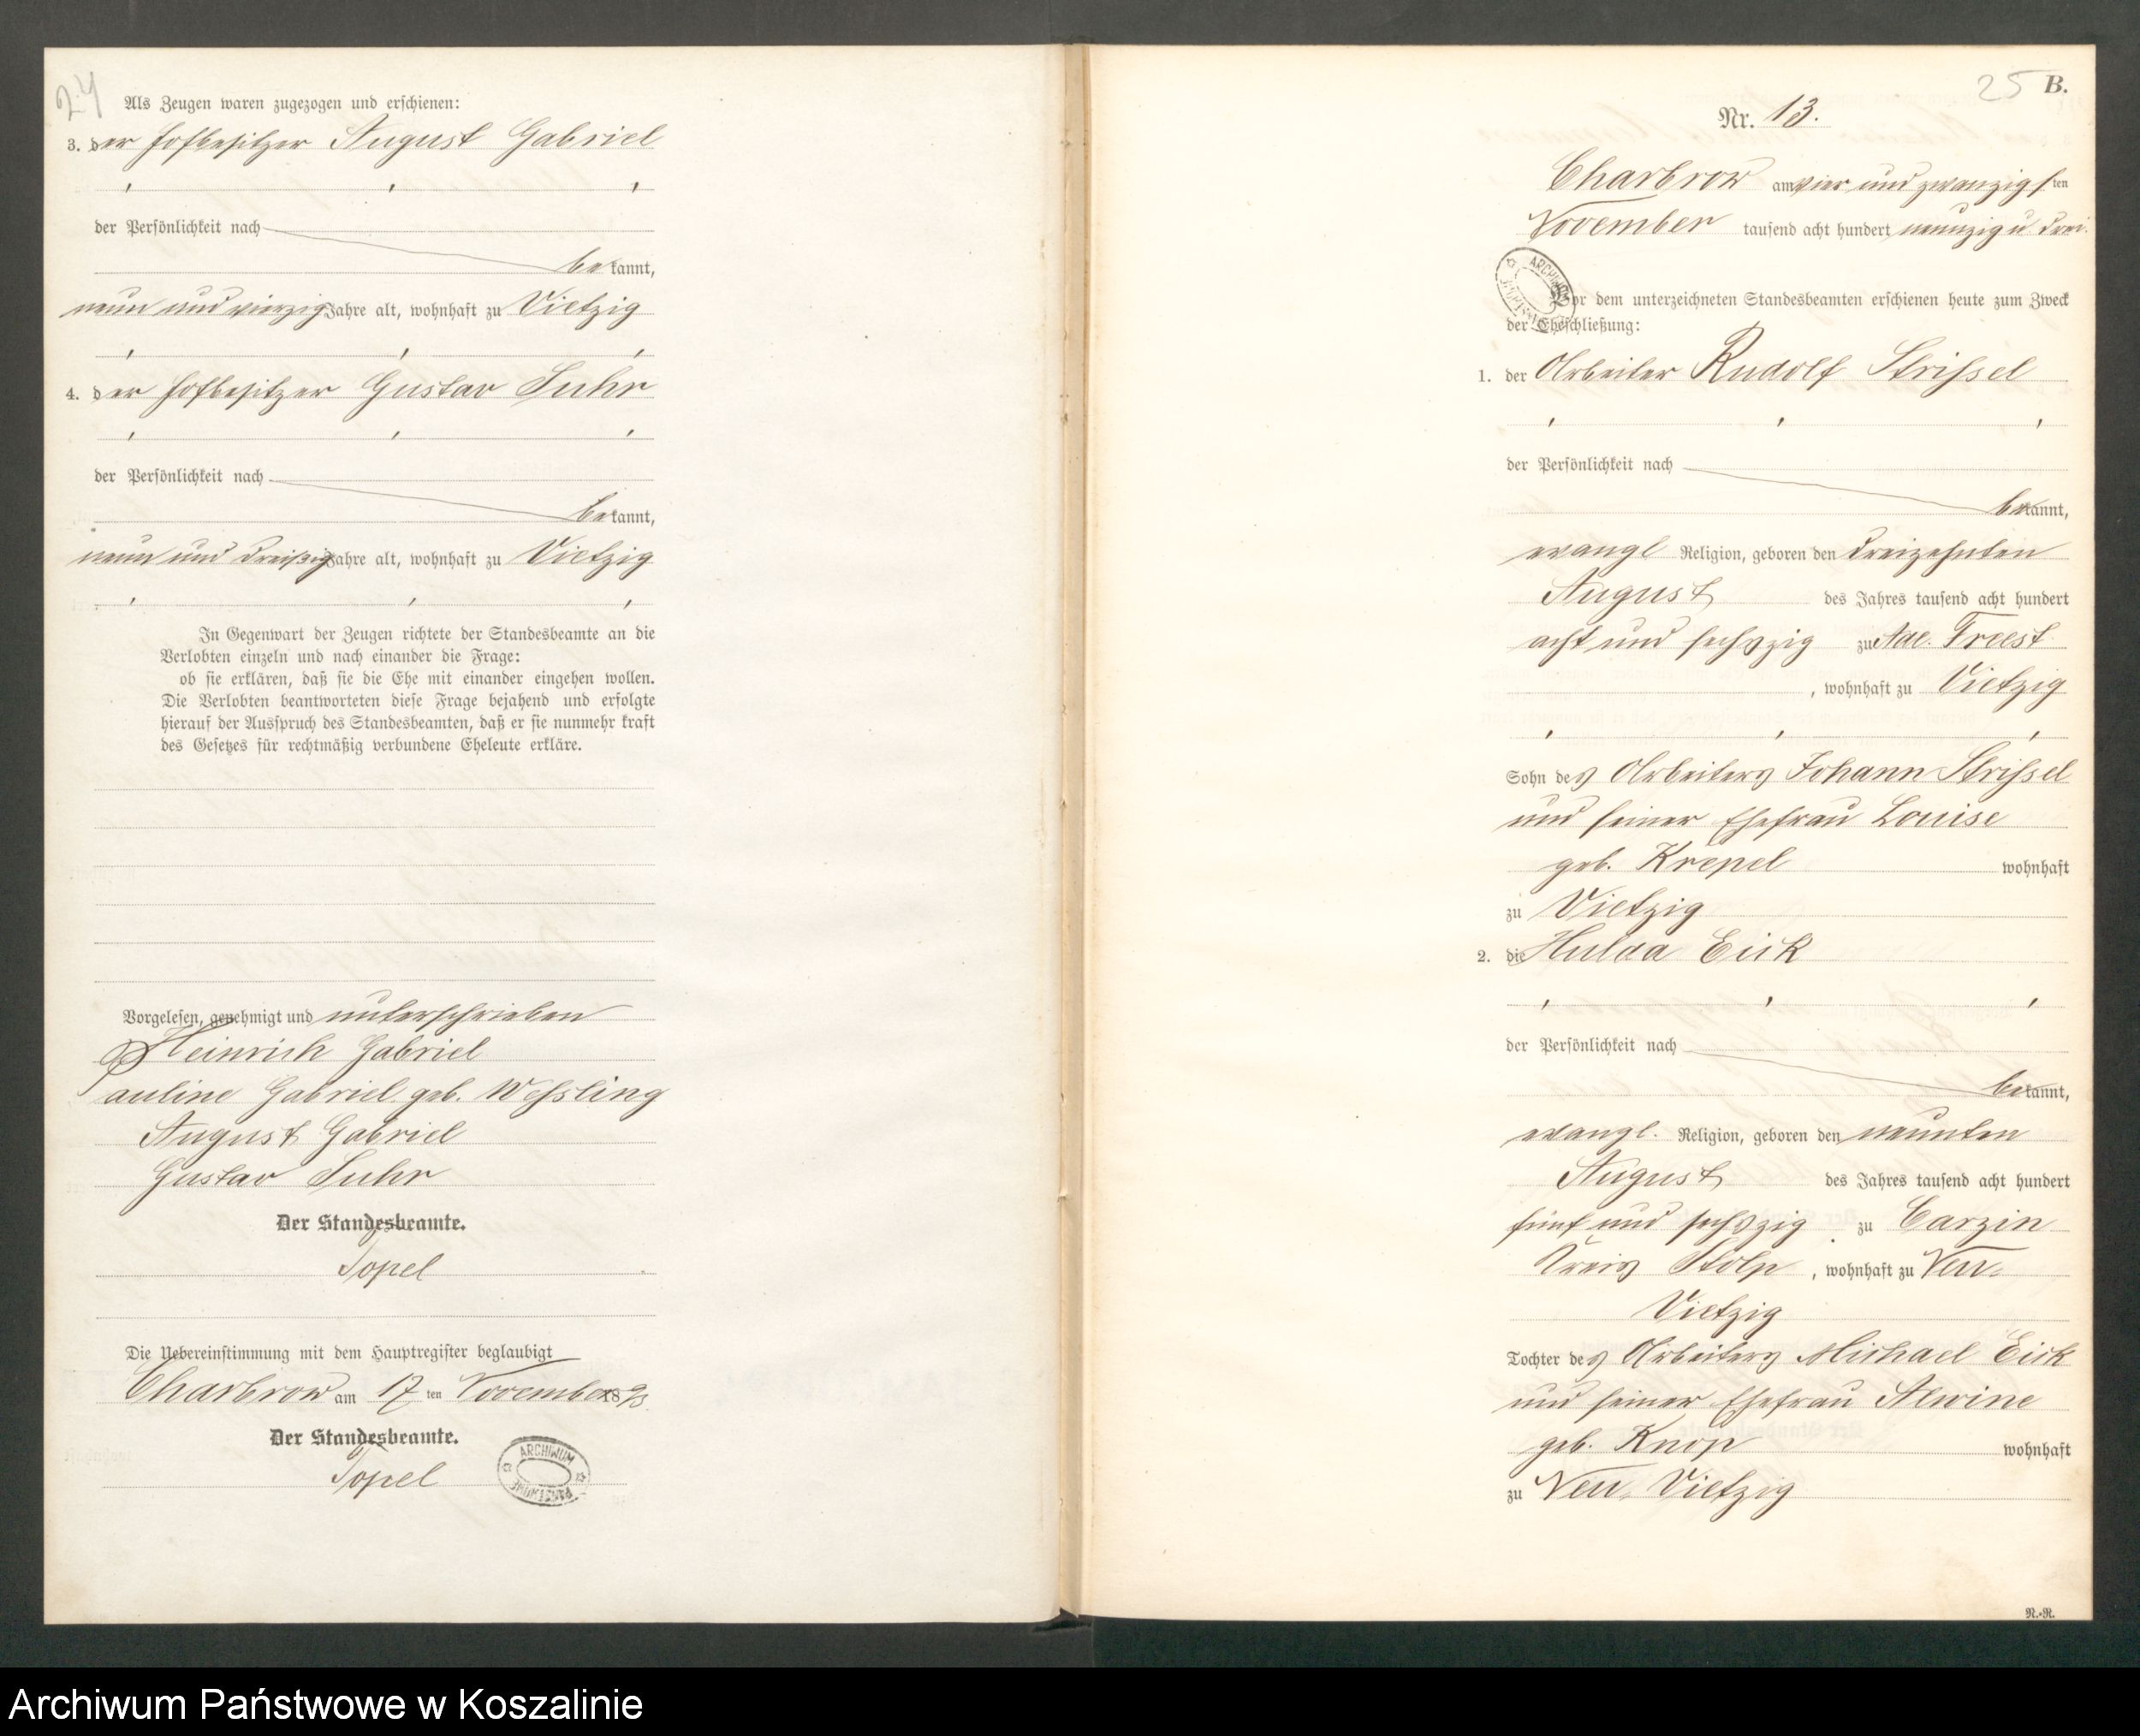 24
Als Zeugen waren zugezogen und erschienen:
3. der Hofbesitzer August Gabriel
der Persönlichkeit nach
bekannt,
neun und vierzig Jahre alt, wohnhaft zu Vietzig
4. der Hofbesitzer Gustav Suhr
der Persönlichkeit nach
bekannt,
neun und dreißig Jahre alt, wohnhaft zu Vietzig
In Gegenwart der Zeugen richtete der Standesbeamte an die
Verlobten einzeln und nach einander die Frage:
ob sie erklären, daß sie die Ehe mit einander eingehen wollen.
Die Verlobten beantworteten diese Frage bejahend und erfolgte
hierauf der Ausspruch des Standesbeamten, daß er sie nunmehr kraft
des Gesetzes für rechtmäßig verbundene Eheleute erkläre.
Vorgelesen, genehmigt und unterschrieben
Heinrich Gabriel
Pauline Gabriel geb. Weßling
August Gabriel
Gustav Suhr
Der Standesbeamte.
Topel
Die Uebereinstimmung mit dem Hauptregister beglaubigt
Charbrow am 17 ten November 1893.
Der Standesbeamte.
Topel
ARCHIWUM PAŃSTWOWE
25 B.
Nr. 13.
Charbrow am vier und zwanzigsten
November tausend acht hundert neunzig u drei.
ARCHIWUM
Vor dem unterzeichneten Standesbeamten erschienen heute zum Zweck
der Eheschließung:
1. der Arbeiter Rudolf Strißel
der Persönlichkeit nach
bekannt,
evangl Religion, geboren den dreizehnten
August des Jahres tausend acht hundert
acht und sechszig zu Adl. Freest
, wohnhaft zu Vietzig
Sohn des Arbeiters Johann Strißel
und seiner Ehefrau Louise
geb. Krepel wohnhaft
zu Vietzig
2. die Hulda Eick
der Persönlichkeit nach
bekannt,
evangl. Religion, geboren den neunten
August des Jahres tausend acht hundert
fünf und sechszig zu Carzin
Kreis Stolp, wohnhaft zu Neu-
Vietzig
Tochter des Arbeiters Michael Eick
und seiner Ehefrau Alwine
geb. Knop wohnhaft
zu Neu-Vietzig
R.-R.
Archiwum Państwowe w Koszalinie